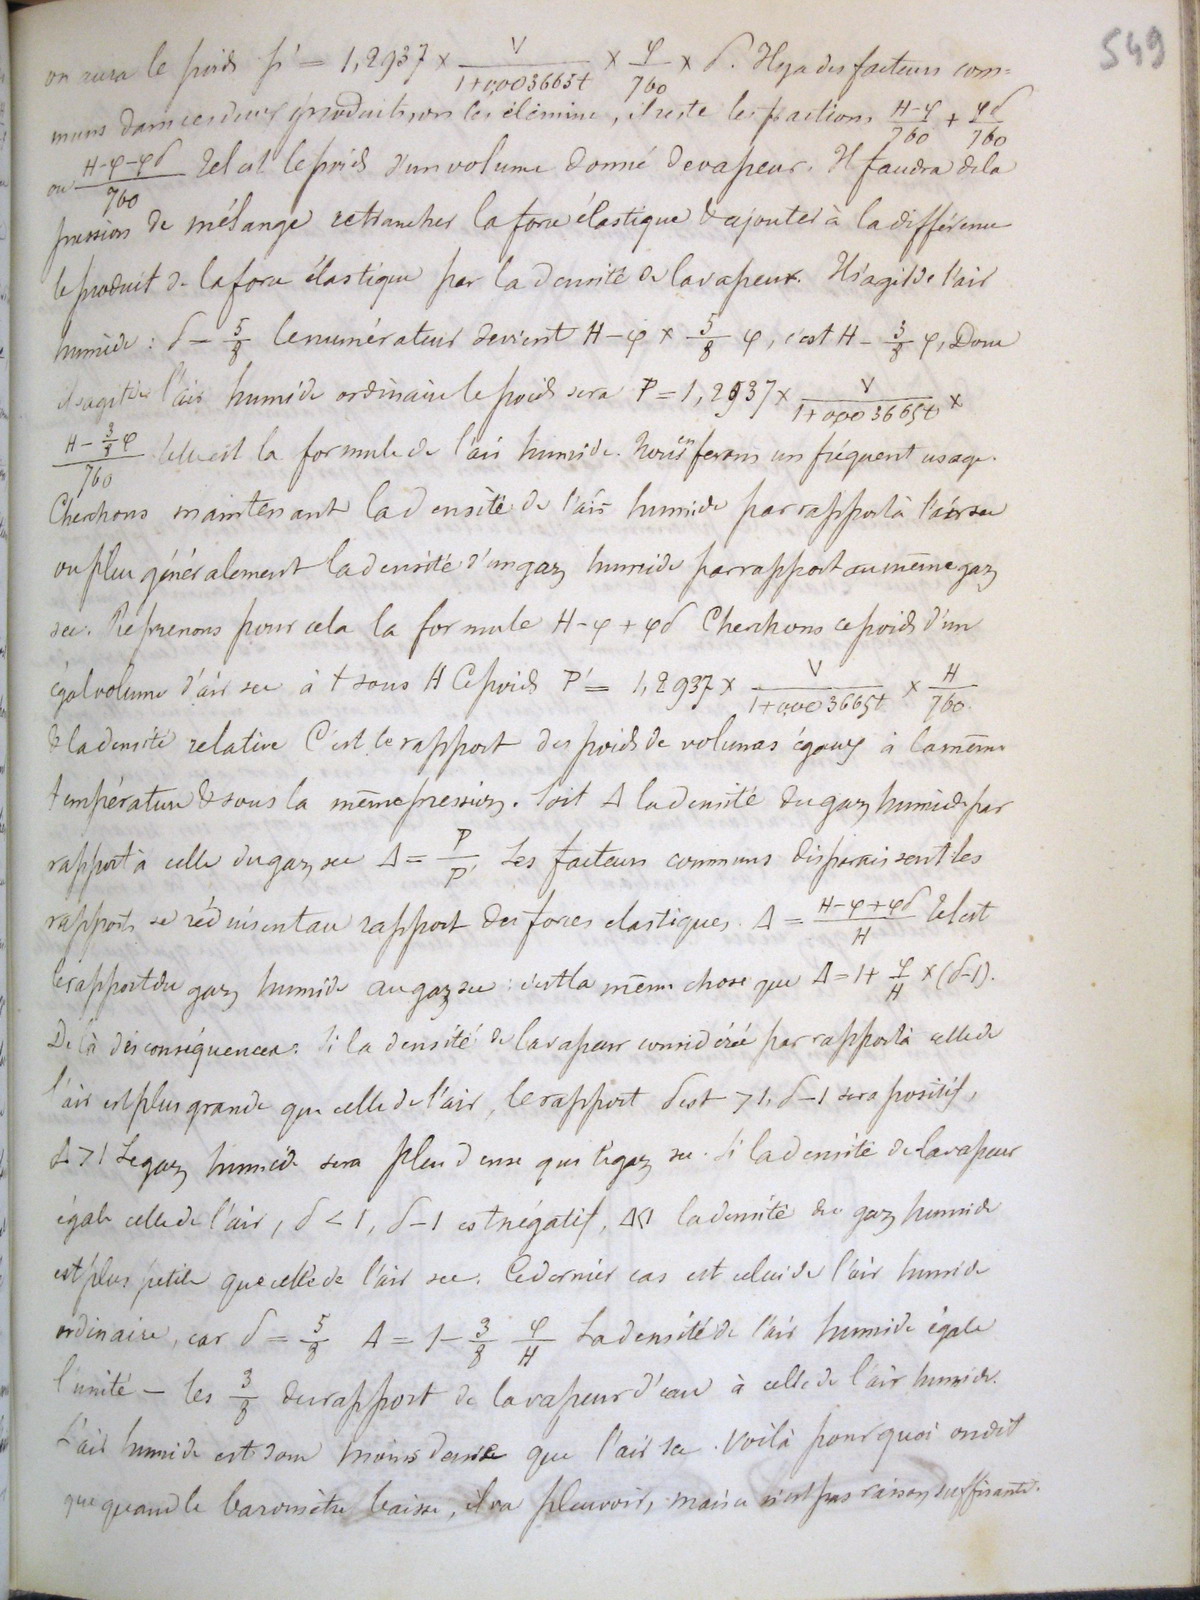 549
on aura le poids p' = 1,2937 × V/(1+0,003665t) × φ/760 × δ. Il y a des facteurs com=
muns dans ces deux produits, on les élimine, il reste les fractions (H-φ)/760 + φδ/760
ou (H-φ-φδ)/760 tel est le poids d'un volume donné de vapeur. Il faudra de la
pression de mélange retrancher la force élastique & ajouter à la différence
le produit de la force élastique par la densité de la vapeur. Il s'agit de l'air
humide : δ = 5/8 le numérateur devient H-φ × 5/8 φ, c'est H - 3/8 φ, Donc
il s'agit de l'air humide ordinaire le poids sera P = 1,2937 × V/(1+0,003665t) ×
(H - 3/8 φ)/760 telle est la formule de l'air humide. Nous en ferons un fréquent usage.
Cherchons maintenant la densité de l'air humide par rapport à l'air sec
ou plus généralement la densité d'un gaz humide par rapport au même gaz
sec. Reprenons pour cela la formule H-φ+φδ Cherchons ce poids d'un
égal volume d'air sec à t sous H Ce poids P' = 1,2937 × V/(1+0,003665t × H/760.
& la densité relative C'est le rapport des poids de volumes égaux à la même
température & sous la même pression. Soit Δ la densité du gaz humide par
rapport à celle du gaz sec Δ = P/P' Les facteurs communs disparaissent les
rapports se réduisent au rapport des forces elastiques. Δ = (H-φ+φδ)/H Tel est
le rapport du gaz humide au gaz sec : c'est la même chose que Δ = 1 + φ/H × (δ-1).
De là des conséquences. Si la densité de la vapeur considérée par rapport à celle de
l'air est plus grande que celle de l'air, le rapport δ est > 1, δ-1 sera positif,
Δ > 1 Le gaz humide sera plus dense que le gaz sec. Si la densité de la vapeur
égale celle de l'air, δ < 1, δ-1 est négatif, Δ<1 la densité du gaz humide
est plus petite que celle de l'air sec. Ce dernier cas est celui de l'air humide
ordinaire, car δ = 5/8 Δ = 1 - 3/8 φ/H La densité de l'air humide égale
l'unité - les 3/8 du rapport de la vapeur d'eau à celle de l'air humide.
L'air humide est donc moins dense que l'air sec. Voilà pourquoi on dit
que quand le baromètre baisse, il va pleuvoir, mais ce n'est pas raison suffisante.